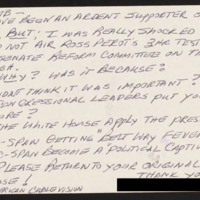 VE BEEN AN ARDENT SUPPORTER O
BUT; I WAS REALLY SHOCKED
NOT AIR ROSS PEROT'S 3HR TEST
SENATE REFORM COMMITTEE ON T
WHY? WAS IT BECAUSE?
DIDN'T THINK IT WAS IMPORTANT?
CONGRESSIONAL LEADERS PUT YOU
URE?
THE WHITE HOUSE APPLY THE PRES
C-SPAN GETTING "BELTWAY FEVER
C-SPAN BECOME A "POLITICAL CAPTIV
PLEASE RETURN TO YOUR ORIGINAL
OSE!
THANK YO
ERICAN CABLEVISION